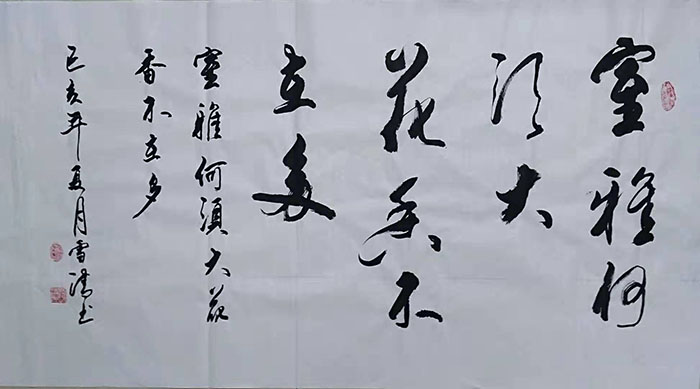 室雅何
須大
花香不
在多
室雅何須大花
香不在多
己亥年夏月雪清书